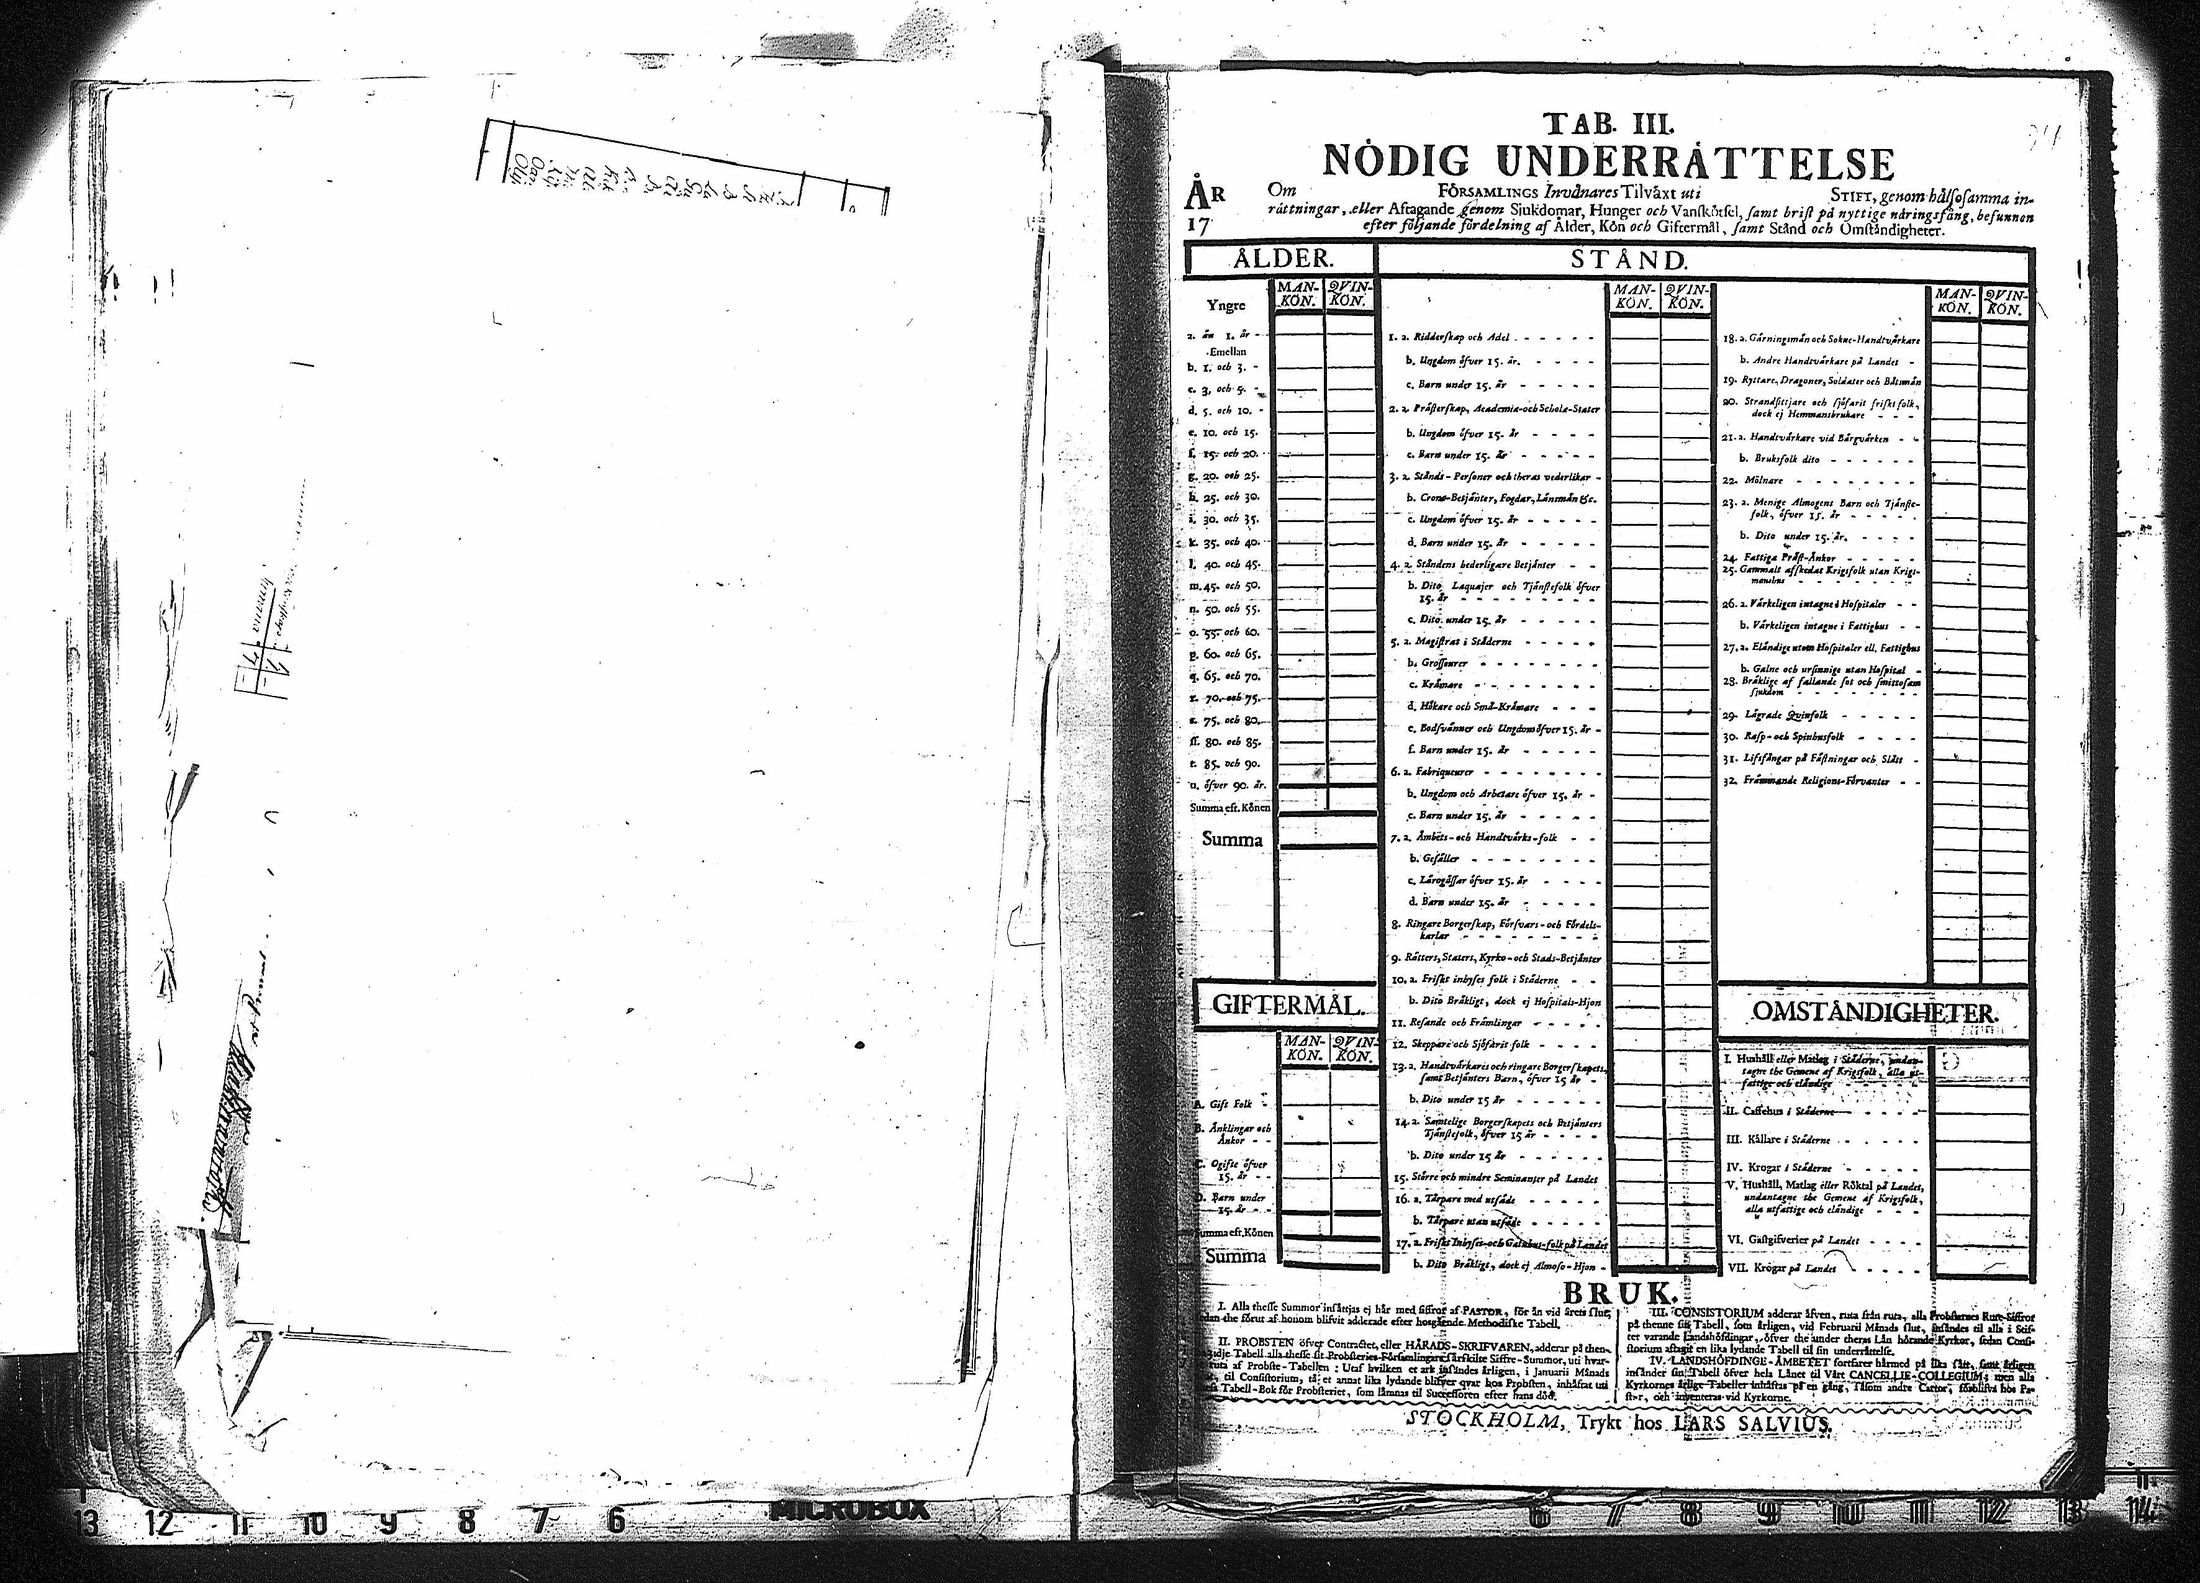 TAB. III.
NÖDIG UNDERRÅTTELSE
ÅR
17
Om FÖRSAMLINGS Invånares Tilvåxt uti STIFT, genom hålsosamma in-
råttningar, eller Aftagande genom Sjukdomar, Hunger och Vanskötsel, samt brist på nyttige nåringsfång, befunnen
efter följande fördelning af Ålder, Kön och Giftermål, samt Stånd och Omståndigheter.
ÅLDER.
MAN-KÖN. QVIN-KÖN.
Yngre
a. ån 1. år -
Emellan
b. 1. och 3. -
c. 3. och 5. -
d. 5. och 10. -
e. 10. och 15.
f. 15. och 20.
g. 20. och 25.
h. 25. och 30.
i. 30. och 35.
k. 35. och 40.
l. 40. och 45.
m. 45. och 50.
n. 50. och 55.
o. 55. och 60.
p. 60. och 65.
q. 65. och 70.
r. 70. och 75.
s. 75. och 80.
ss. 80. och 85.
t. 85. och 90.
u. öfver 90. år.
Summa eft. Könen
Summa
GIFTERMÅL.
MAN-KÖN. QVIN-KÖN.
A. Gift Folk -
B. Ånklingar och
Ånkor - -
C. Ogifte öfver
15. år - -
D. Barn under
15. år - -
Summa eft. Könen
Summa
STÅND.
MAN-KÖN. QVIN-KÖN.
1. a. Ridderskap och Adel - - - - -
b. Ungdom öfver 15. år. - - - -
c. Barn under 15. år - - - - -
2. a. Pråsterskap, Academia- och Schola-Stater
b. Ungdom öfver 15. år - - - -
c. Barn under 15. år - - - - -
3. a. Stånds-Personer och theras vederlikar -
b. Crono-Betjånter, Fogdar, Lånsmån &c.
c. Ungdom öfver 15. år - - - - -
d. Barn under 15. år - - - - -
4. a. Ståndens hederligare Betjånter - -
b. Dito Laquajer och Tjånstefolk öfver
15. år - - - - - - -
c. Dito under 15. år - - - - -
5. a. Magistrat i Ståderne - - - -
b. Grosseurer - - - - - - -
c. Kråmare - - - - - - -
d. Håkare och Små-Kråmare - - -
e. Bodsvånner och Ungdom öfver 15. år -
f. Barn under 15. år - - - - -
6. a. Fabriqueurer - - - - - - -
b. Ungdom och Arbetare öfver 15. år -
c. Barn under 15. år - - - - -
7. a. Åmbets- och Handtvårks-folk - -
b. Gesåller - - - - - - -
c. Lårogåssar öfver 15. år - - - -
d. Barn under 15. år - - - - -
8. Ringare Borgerskap, Försvars- och Fördels-
karlar - - - - - - -
9. Råtters, Staters, Kyrko- och Stads-Betjånter
10. a. Friskt inhyses folk i Ståderne - -
b. Dito Bråkligt, dock ej Hospitals-Hjon
11. Resande och Fråmlingar - - - -
12. Skeppare och Sjöfarit folk - - - -
13. a. Handtvårkares och ringare Borgerskapets,
samt Betjånters Barn, öfver 15 år -
b. Dito under 15 år - - - - -
14. a. Samtelige Borgerskapets och Betjånters
Tjånstefolk, öfver 15 år - - - -
b. Dito under 15 år - - - - -
15. Större och mindre Seminanter på Landet
16. a. Torpare med utsåde - - - -
b. Torpare utan utsåde - - - - -
17. a. Friskt Inhyses- och Gatuhus-folk på Landet
b. Dito Bråkligt, dock ej Almoso-Hjon -
MAN-KÖN. QVIN-KÖN.
18. a. Gårningsmån och Sokne-Handtvårkare
b. Andre Handtvårkare på Landet -
19. Ryttare, Dragoner, Soldater och Båtsmån
20. Strandsittjare och sjöfarit friskt folk,
dock ej Hemmansbrukare - - -
21. a. Handtvårkare vid Bårgvårken - -
b. Bruksfolk dito - - - - - -
22. Mölnare - - - - - - -
23. a. Menige Almogens Barn och Tjånste-
folk, öfver 15. år - - - -
b. Dito under 15. år. - - - -
24. Fattiga Pråst-Ånkor - - - - -
25. Gammalt afskedat Krigsfolk utan Krigs-
manshus - - - - - -
26. a. Vårkeligen intagne i Hospitaler - -
b. Vårkeligen intagne i Fattighus - -
27. a. Elåndige utom Hospitaler ell. Fattighus
b. Galne och ursinnige utan Hospital -
28. Bråklige af fallande sot och smittosam
sjukdom - - - - - -
29. Lågrade Qvinfolk - - - - -
30. Rasp- och Spinhusfolk - - - -
31. Lifsfångar på Fåstningar och Slått -
32. Fråmmande Religions-Förvanter - -
OMSTÅNDIGHETER.
I. Hushåll eller Matlag i Ståderne, undan-
tagne the Gemene af Krigsfolk, alla ut-
fattige och elåndige - - - -
II. Caffehus i Ståderne - - - -
III. Kållare i Ståderne - - - -
IV. Krogar i Ståderne - - - - -
V. Hushåll, Matlag eller Röktal på Landet,
undantagne the Gemene af Krigsfolk,
alla utfattige och elåndige - - -
VI. Gåstgifverier på Landet - - - -
VII. Krögar på Landet - - - -
BRUK.
I. Alla thesse Summor insåttjas ej hår med siffror af PASTOR, för ån vid årets slut,
sedan the förut af honom blifvit adderade efter hosgående Methodiske Tabell.
II. PROBSTEN öfver Contractet, eller HÅRADS-SKRIFVAREN, adderar på then-
Tabell alla thesse sit Probsteries Församlingars sårskilte Siffre-Summor, uti hvar-
ruta af Probste-Tabellen: Utaf hvilken et ark insåndes årligen, i Januarii Månads
til Consistorium, så et annat lika lydande blifver qvar hos Probsten, inhåftat uti
Tabell-Bok för Probsteriet, som låmnas til Successoren efter hans död.
III. CONSISTORIUM adderar åfven, ruta från ruta, alla Probsternes Rute-Siffror
på thenne sin Tabell, som årligen, vid Februarii Månads slut, insåndes til alla i Stif-
tet varande Landshöfdingar, öfver the under theras Lån hörande Kyrkor, sedan Consi-
storium aftagit en lika lydande Tabell til sin underråttelse.
IV. LANDSHÖFDINGE-ÅMBETET fortfarer hårmed på lika sått, samt årligen
insånder sin Tabell öfver hela Lånet til Vårt CANCELLIE-COLLEGIUM; men alla
Kyrkornes årlige Tabeller inhåftas på en gång, såsom andre Cartor, förblifva hos Pa-
stor, och inventeras vid Kyrkorne.
STOCKHOLM, Trykt hos LARS SALVIUS.
MICROBOX
13 12 11 10 9 8 7 6
6 7 8 9 10 11 12 13 14